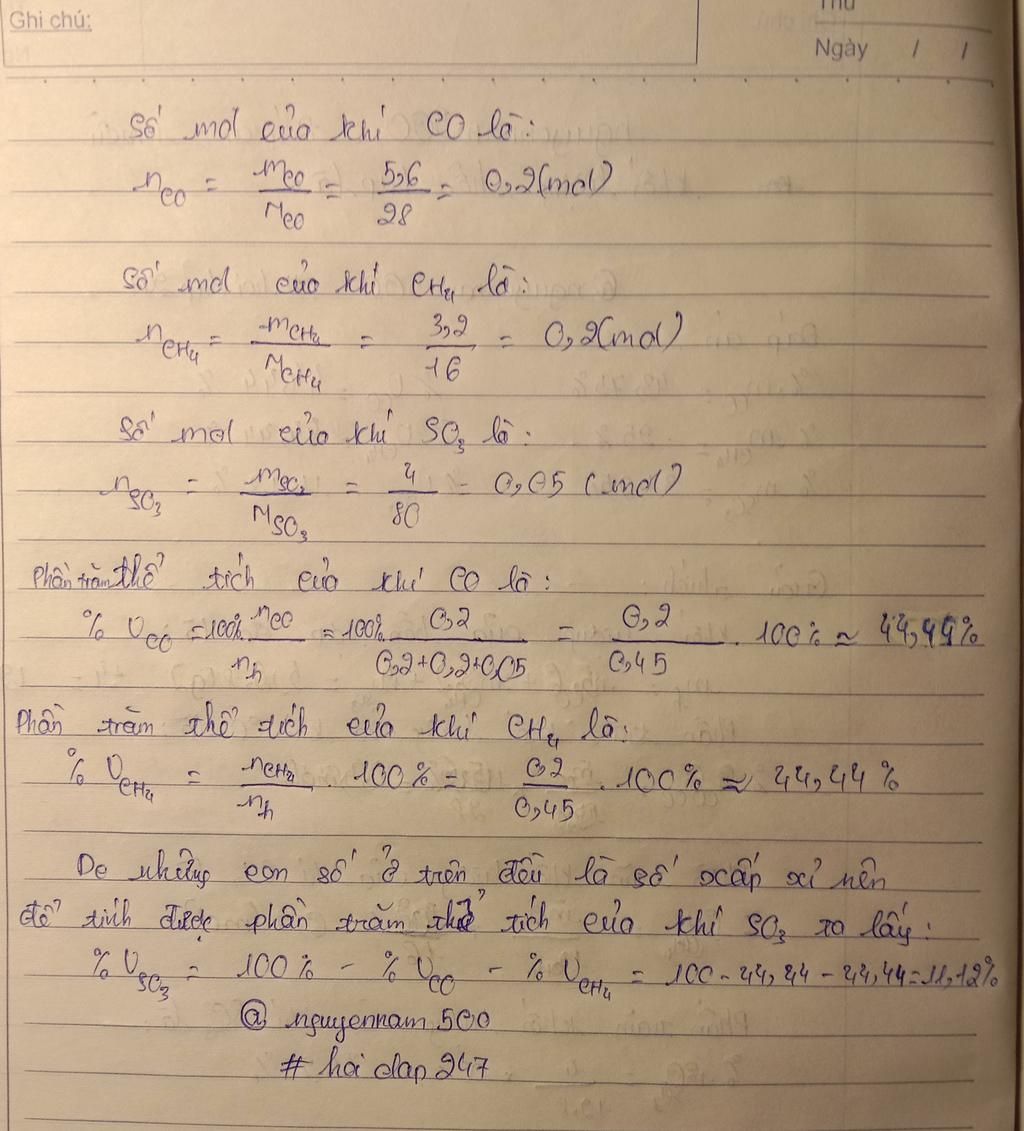 Ghi chú:
Thứ
Ngày / /
Số mol của khí CO là:
n_CO = m_CO / M_CO = 5,6 / 28 = 0,2(mol)
Số mol của khí CH₄ là:
n_CH₄ = m_CH₄ / M_CH₄ = 3,2 / 16 = 0,2(mol)
Số mol của khí SO₃ là:
n_SO₃ = m_SO₃ / M_SO₃ = 4 / 80 = 0,05 (mol)
Phần trăm thể tích của khí CO là:
% V_CO = 100%. n_CO / n_h = 100%. 0,2 / 0,2+0,2+0,05 = 0,2 / 0,45 . 100% ≈ 44,44%
Phần trăm thể tích của khí CH₄ là:
% V_CH₄ = n_CH₄ / n_h . 100% = 0,2 / 0,45 . 100% ≈ 44,44%
Do những con số ở trên đều là số xấp xỉ nên
để tính được phần trăm thể tích của khí SO₃ ta lấy:
% V_SO₃ = 100% - % V_CO - % V_CH₄ = 100 - 44,44 - 44,44 = 11,12%
@ nguyennam 500
# hoi dap 247